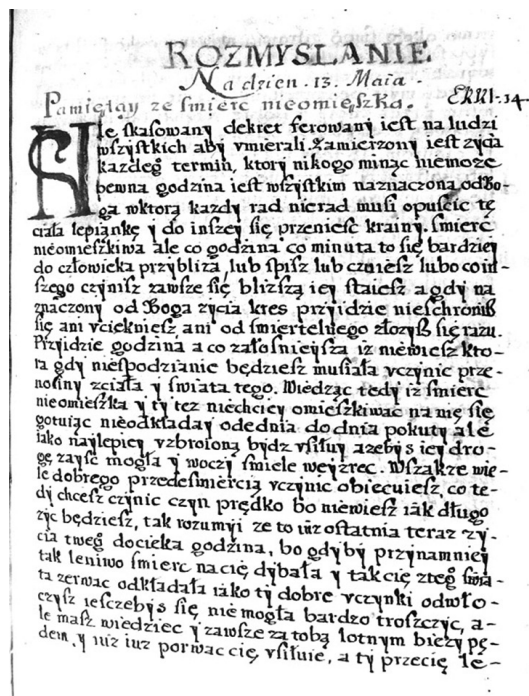 ROZMYSLANIE
Na dzien . 13. Maia.
Pamiętay ze smierc nieomięszka. EKKL. 14
Nie skasowany dekret ferowany iest na ludzi
wszystkich aby vmierali. Zamierzony iest zycia
kazdeg termin, ktory nikogo minąc niemoze
pewna godzina iest wszystkim naznaczona od Bo-
ga wktorą kazdy rad nierad musi opuscic tę
ciała lepiankę y do inszey się przeniesc krainy. smierc
nieomieszkiwa ale co godzina co minuta to się bardziey
do człowieka przybliza, lub spisz lub czuiesz lubo coin-
szego czynisz zawsze się blizszą iey staiesz a gdy na
znaczony od Boga zycia kres przyidzie nieschronisz
się ani vciekniesz ani od smiertelnego złozysz się razu.
Przyidzie godzina a co załosnieysza iz niewiesz kto-
ra gdy niespodzianie będziesz musiała vczynic prze-
nosiny zciała y swiata tego. Wiedząc tedy iz smierc
nieomieszka y ty tez niechciey omieszkiwac na nię się
gotuiąc nieodkładay odednia do dnia pokuty ale
iako naylepiey vzbroioną bydz vsiłuy azebys iey dro-
gę zaysc mogła y woczy smiele weyzrec. Wszakze wie-
le dobrego przedesmiercią vczynic obiecuiesz, co te-
dy chcesz czynic czyn prędko bo niewiesz iak długo
zyc będziesz, tak rozumyi ze to iuz ostatnia teraz zy-
cia tweg docieka godzina, bo gdyby przynamniey
tak leniwo smierc nacię dybała y tak cię zteg swia-
ta zerwac odkładała iako ty dobre vczynki odwło-
czysz ieszczebys się niemogła bardzo troszczyc, a-
le masz wiedziec y zawsze zatobą lotnym biezy pę-
dem, y iuz iuz porwac cię vsiłuie, a ty przecię le-